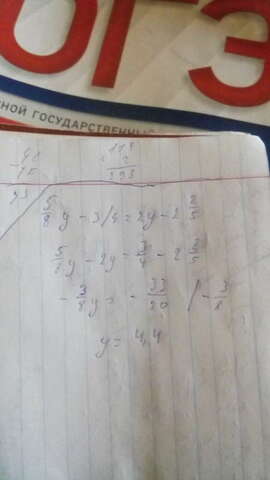 ОГЭ
НОЙ ГОСУДАРСТВЕННЫ
5/8 y - 3/4 = 2y - 2 2/5
5/8 y - 2y = 3/4 - 2 2/5
- 3/8 y = - 33/20 / - 3/8
y = 4,4